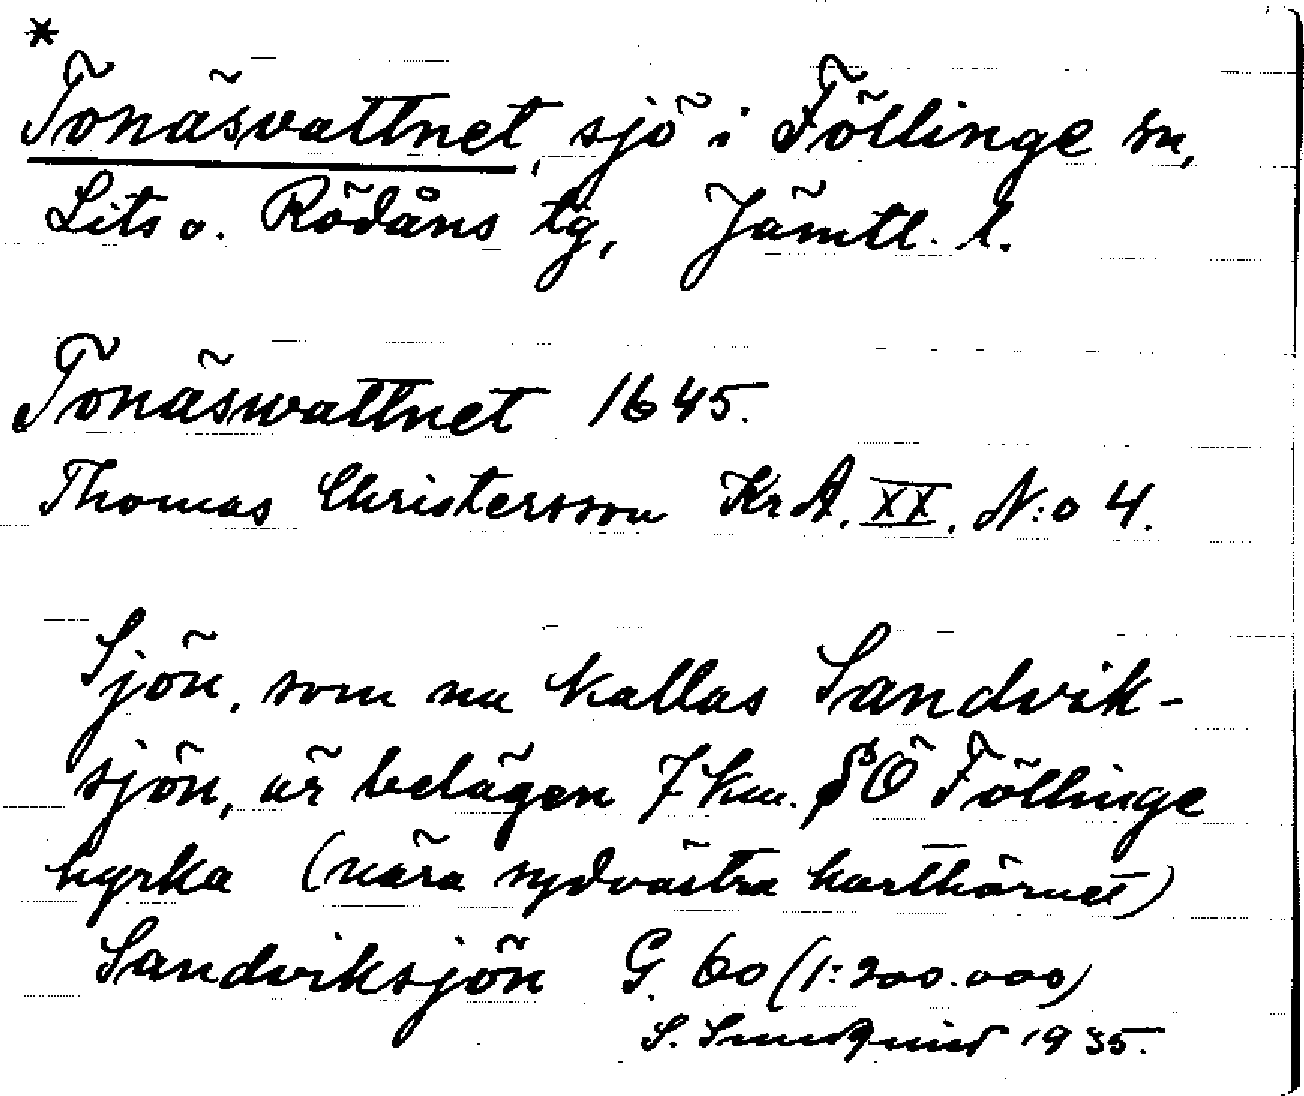 *
Tonäsvattnet, sjö i Föllinge sn,
Lits o. Rödåns tg, Jämtl. l.
Tonäswattnet 1645.
Thomas Christersson KrA. XX. N:o 4.
Sjön, som nu kallas Sandvik-
sjön, är belägen 7 km. SÖ Föllinge
kyrka (nära sydvästra karthörnet)
Sandviksjön G. 60 (1:200.000)
S. Sundquist 1935.